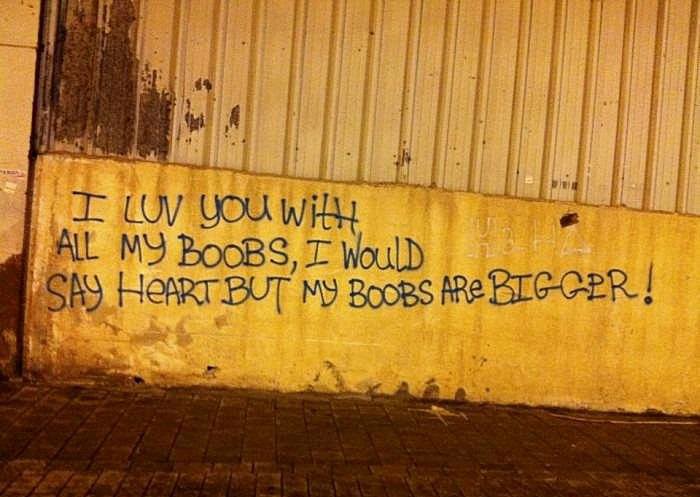 I LUV YOU WitH
ALL MY BOOBS, I WOULD
SAY HEART BUT MY BOOBS ARe BIGGER!